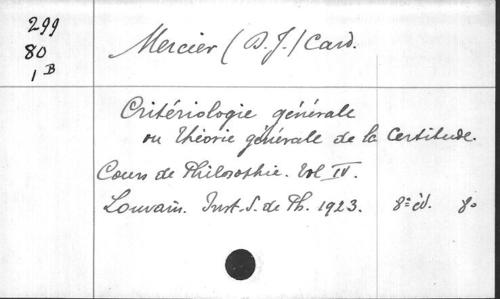 299
80
1 B
Mercier (D. J.) Card.
Critériologie générale
ou Théorie générale de la Certitude.
Cours de Philosophie. Vol IV.
Louvain. Inst. S. de Ph. 1923. 8e éd. 8o